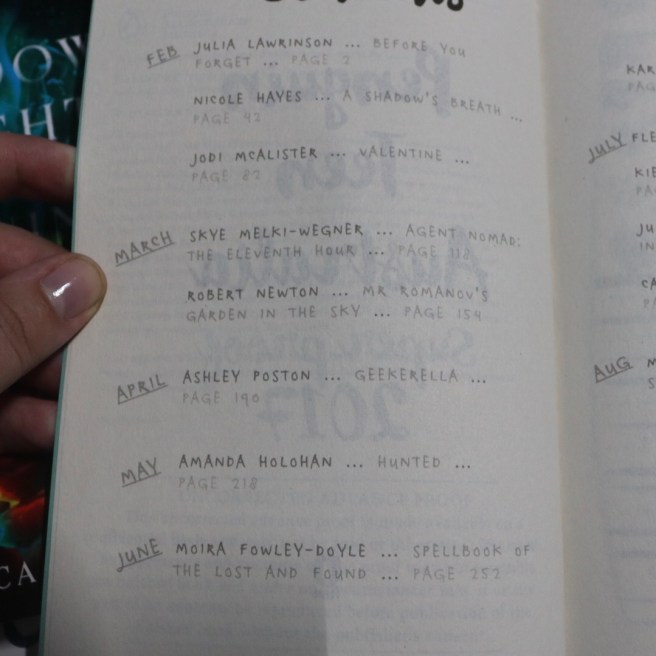 FEB JULIA LAWRINSON ... BEFORE YOU
FORGET ... PAGE 2
NICOLE HAYES ... A SHADOW'S BREATH ...
PAGE 42
JODI McALISTER ... VALENTINE ...
PAGE 82
MARCH SKYE MELKI-WEGNER ... AGENT NOMAD:
THE ELEVENTH HOUR ... PAGE 118
ROBERT NEWTON ... MR ROMANOV'S
GARDEN IN THE SKY ... PAGE 154
APRIL ASHLEY POSTON ... GEEKERELLA ...
PAGE 190
MAY AMANDA HOLOHAN ... HUNTED ...
PAGE 218
JUNE MOIRA FOWLEY-DOYLE ... SPELLBOOK OF
THE LOST AND FOUND ... PAGE 252
KAR
PAG
JULY FLE
KIE
PA
JU
IN
CA
PA
AUG M
S
DOW
HT
CA